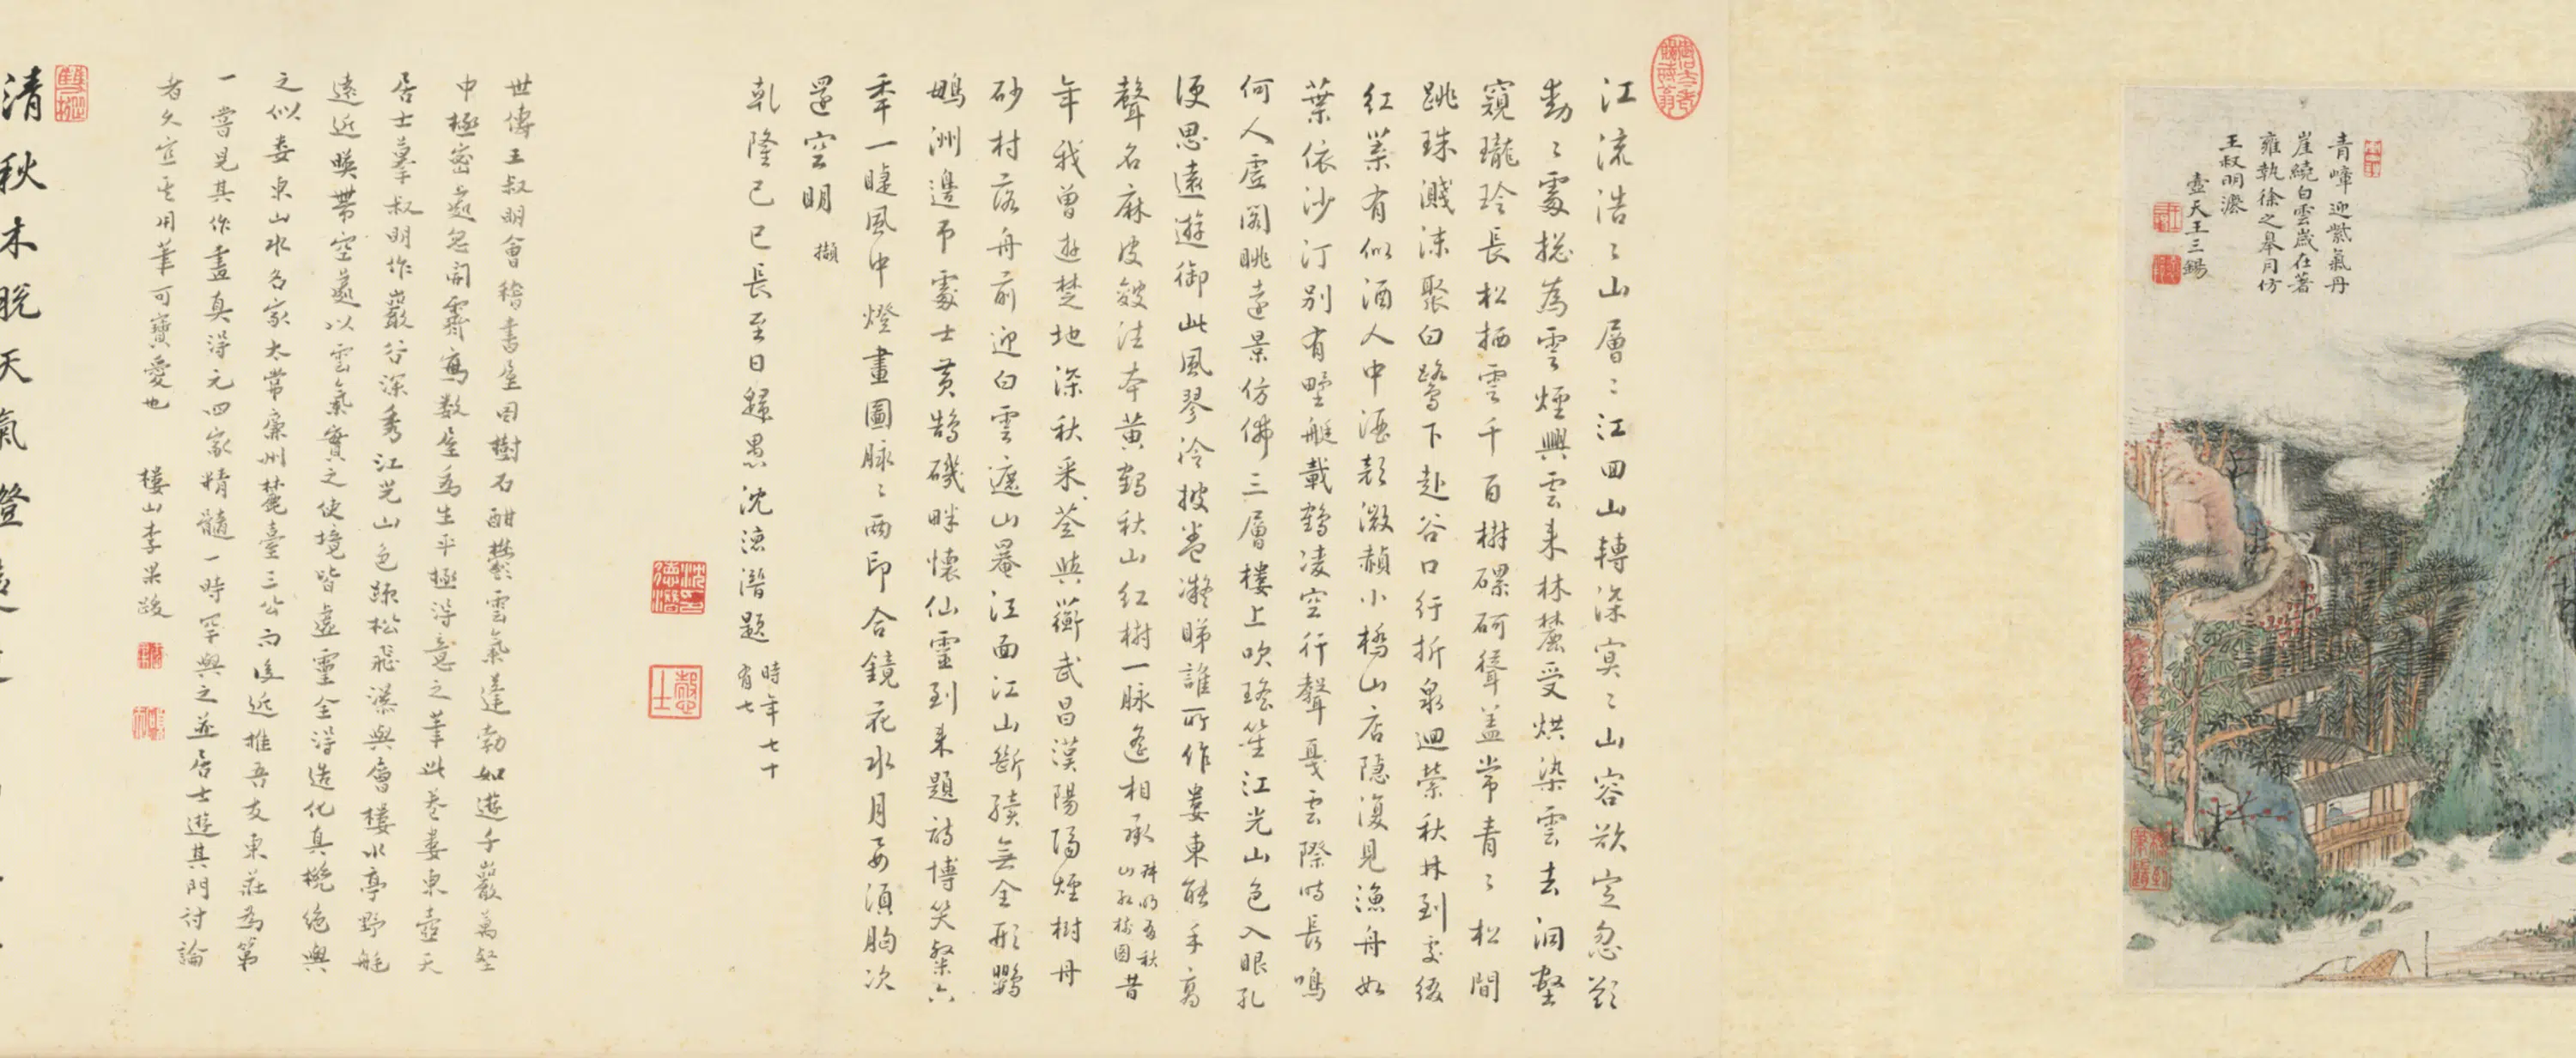 青嶂迎紫氣丹
崖繞白雲歲在著
雍執徐之皋月仿
王叔明瀍
壺天王三錫
江流浩〻山層〻江回山轉深冥〻山容欲定忽欲
動〻處總為雲煙興雲來林麓受烘染雲去洞壑
窺瓏玲長松栖雲千百樹磥砢聳蓋常青〻松間
跳珠濺沫聚白鷺下赴谷口行折泉迴縈秋林到處緩
紅葉有似酒人中酒顏微赬小橋山店隱復見漁舟如
葉依沙汀別有野艇載鶴凌空行聲戛雲際時長鳴
何人虛閣眺遠景仿佛三層樓上吹瑤笙江光山色入眼孔
便思遠遊御此風翏泠披卷凝睇誰所作婁東能手高
聲名麻皮皴法本黃鶴秋山紅樹一脉遙相承
叔明有秋
山紅樹圖
昔
年我曾遊楚地深秋采〻荃與蘅武昌漢陽隔煙樹丹
砂村落舟前迎白雲遮山罨江面江山斷續無全形鸚
鵡洲邊弔處士黃鵠磯畔懷仙靈到来題詩博笑粲六
季一睫風中燈畫圖脉〻兩印合鏡花水月要須胸次
還空明 擷
乾隆己巳長至日歸愚沈德潛題
時年七十
有七
沈氏德潛
世傳王叔明會稽書屋圖樹石酣鬱雲氣蓬勃如遊千巖萬壑
中極密處忽開霽寫數屋為生平極得意之筆此卷婁東壺天
居士摹叔明作巖谷深秀江光山色疎松飛瀑與層樓水亭野艇
遠近暎帶空處以雲氣實之使境皆虛靈全得造化真機絕與
之似婁東山水名家太常廉州麓臺三公而後近推吾友東莊為第
一嘗見其作畫真得元四家精髓一時罕與之並居士遊其門討論
者久宜其用筆可寶愛也 樓山李果跋
清秋木脫天氣澄